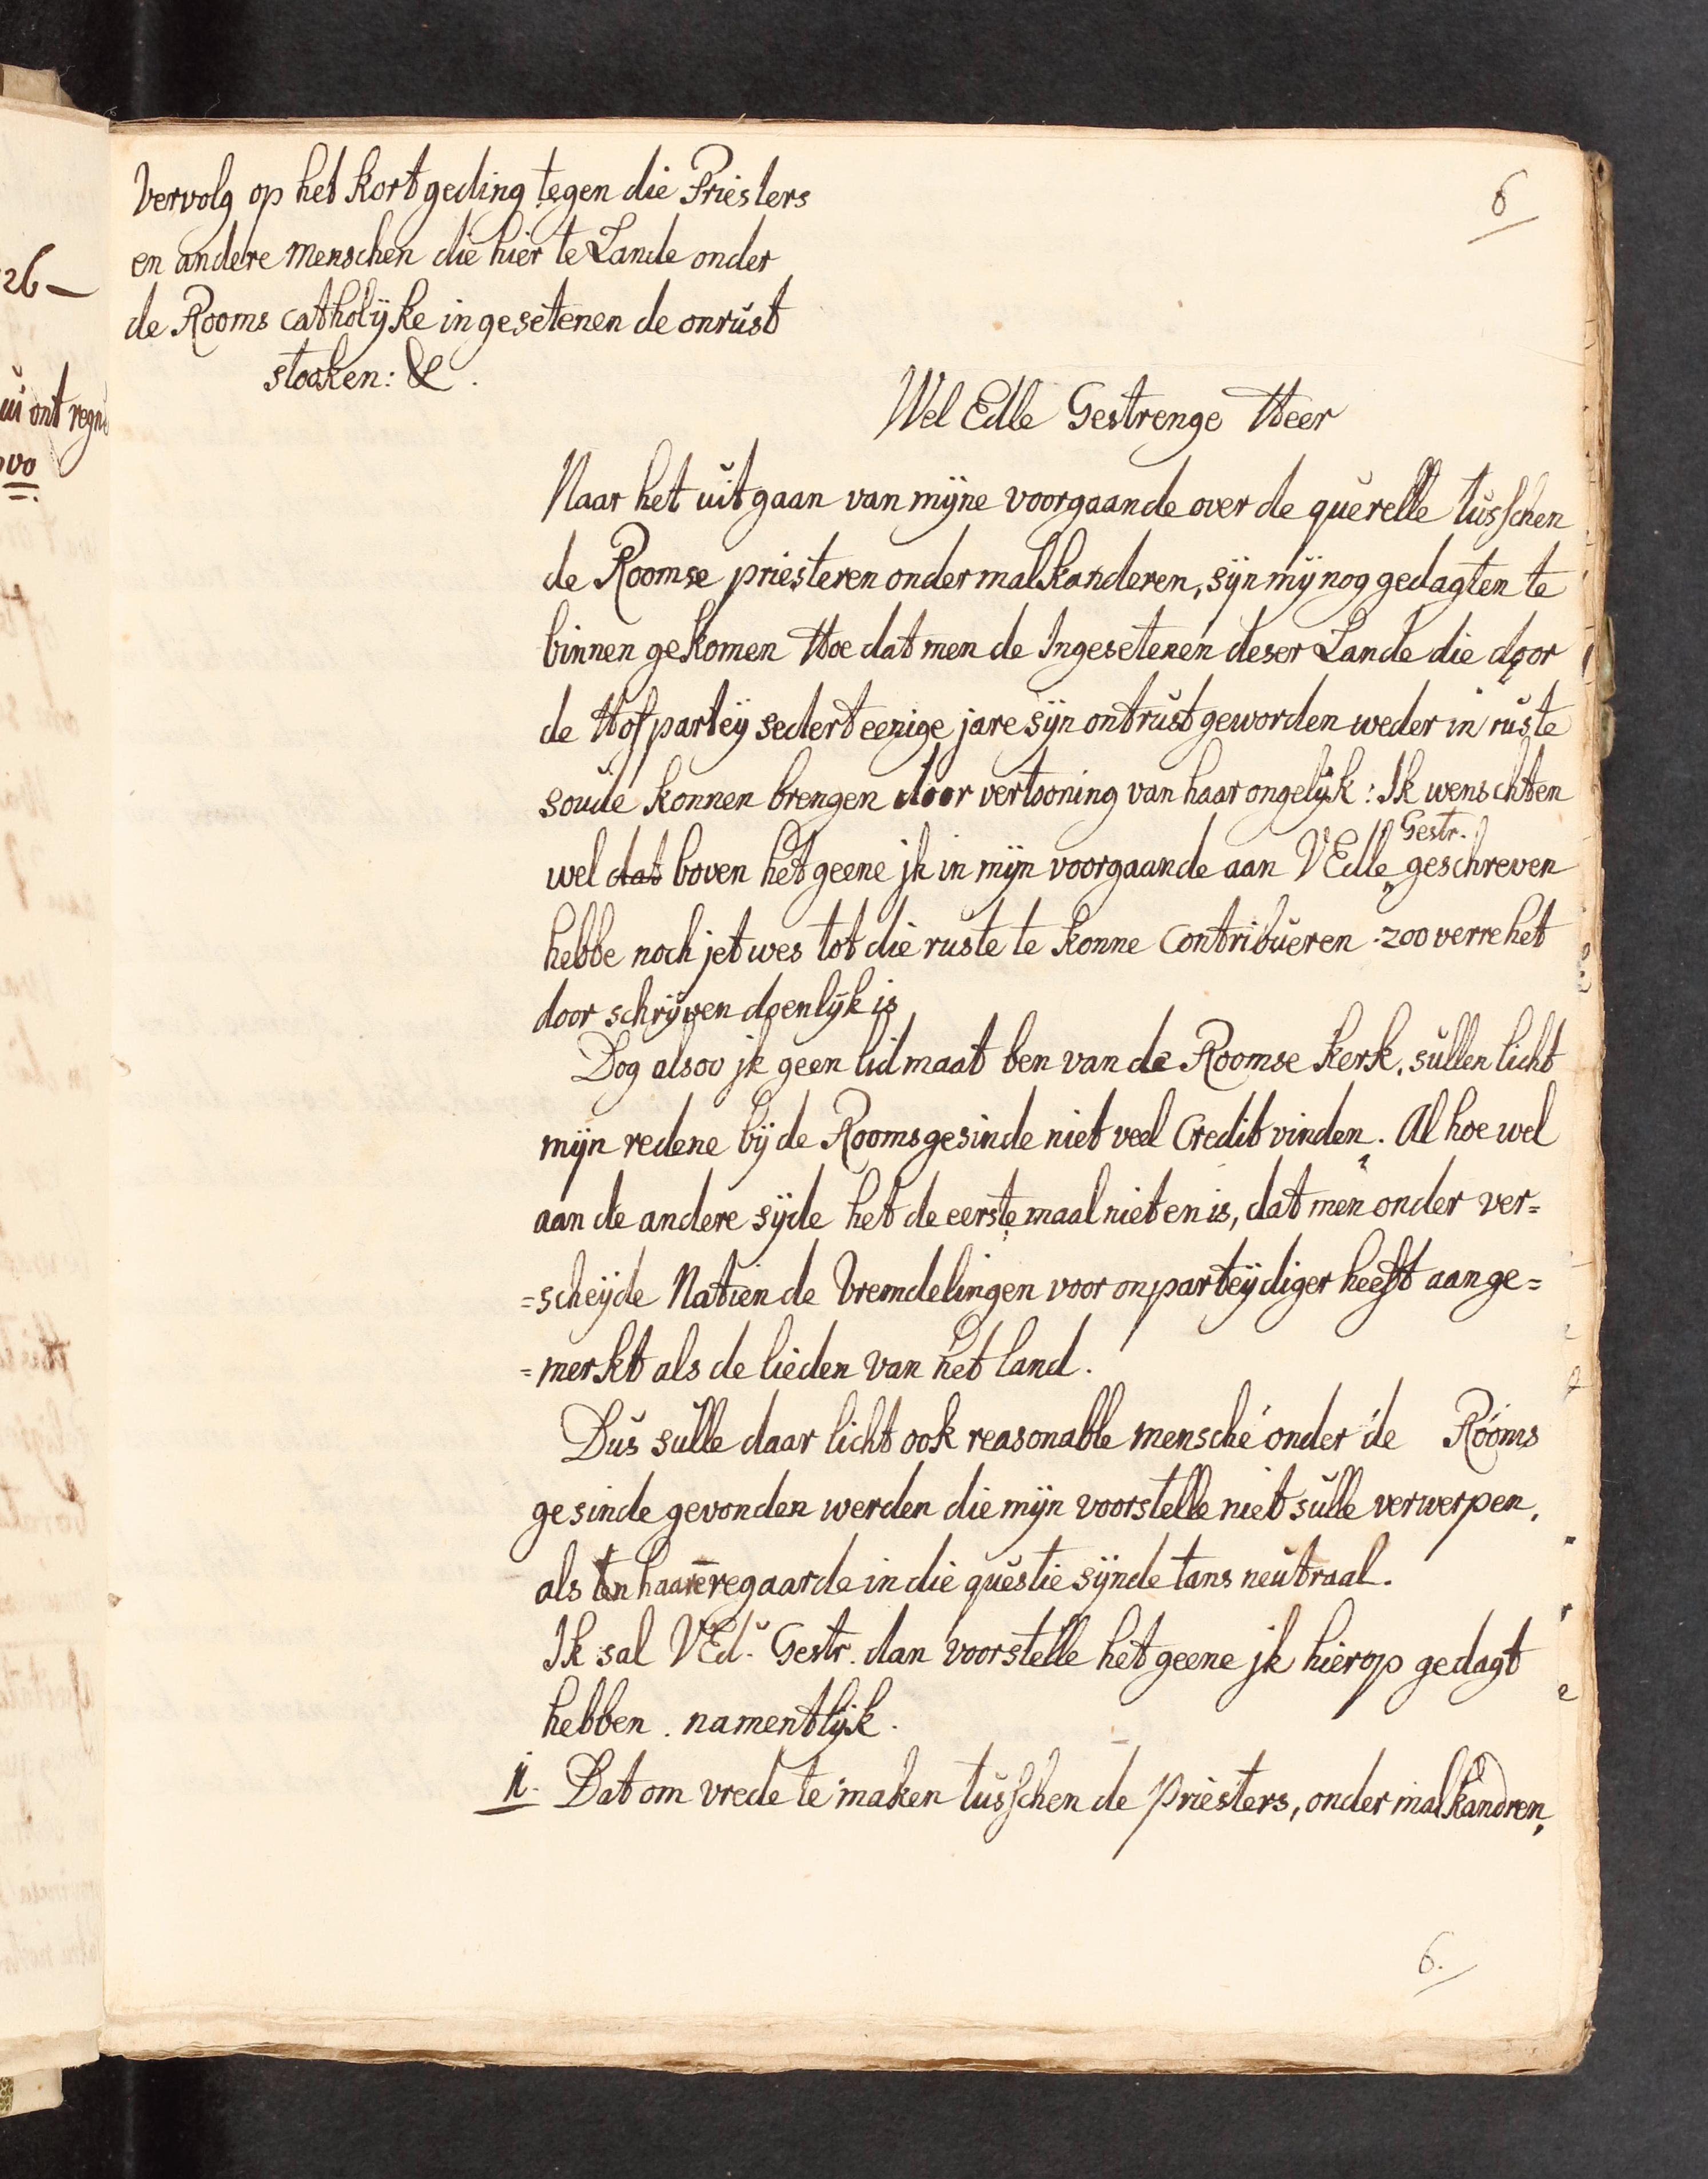 Vervolg op het kort geding tegen die Priesters
en andere menschen die hier te Lande onder
de Rooms catholyke ingesetenen de onrust
stooken: &.
6
Wel Edle Gestrenge Heer
Naar het uitgaan van mijne voorgaande over de querelle tusschen
de Roomse priesteren onder malkanderen, sijn mij nog gedagten te
binnen gekomen Hoe dat men de Ingesetenen deser Lande die door
de Hofpartey sedert eenige jare sijn ontrust geworden weder in ruste
soude konnen brengen door vertooning van haar ongelijk: Ik wenschten
Gestr.
wel dat boven het geene jk in mijn voorgaande aan VEdle geschreven
hebbe noch jet wes tot die ruste te konne Contribueren zoo verre het
door schrijven doenlijk is
Dog alsoo jk geen lidmaat ben van de Roomse Kerk, sullen licht
mijn redene bij de Roomsgesinde niet veel Credit vinden. Al hoe wel
aan de andere sijde het de eerste maal niet en is, dat men onder ver=
=scheijde Natien de Vremdelingen voor onparteijdiger heeft aange=
=merkt als de lieden van het land.
Dus sulle daar licht ook reasonable mensche onder de Rooms
gesinde gevonden werden die mijn voorstelle niet sulle verwerpen,
als ten haare regaarde in die questie sijnde tans neutraal.
Ik sal VEd. Gestr. dan voorstelle het geene jk hierop gedagt
hebben. namentlijk.
1. Dat om vrede te maken tusschen de Priesters, onder malkandren,
6.
26
ui ont regn
ovo